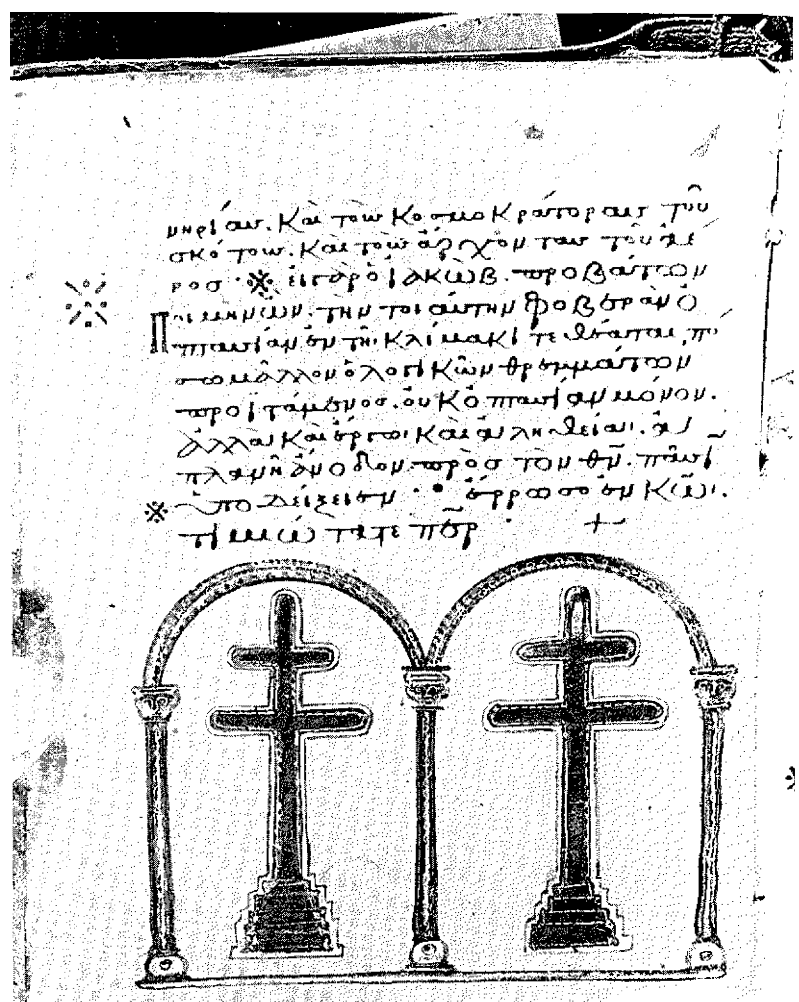 νηρίαν. Καὶ τοὺς Κοσμοκράτορας τοῦ
σκότους. Καὶ τοὺς ἄρχοντας τοῦ ἀέ
ρος · εἰ γὰρ ὁ ἰακὼβ. προβάτων
ποιμὴν ὢν. τὴν τοιαύτην φοβερὰν ὀ
πτασίαν ἐν τῆ κλίμακι τεθέαται, πό
σω μᾶλλον ὁ λογικῶν θρεμμάτων
προϊστάμενος. οὐκ ὀπτασίαν μόνον.
ἀλλὰ καὶ ἔργω καὶ ἀληθεία. ἀ
πλανῆ ἄνοδον πρὸς τὸν θν̄. πᾶσι
ὑποδείξειεν · ἔρρωσο ἐν κω̄.
τιμιώτατε πε̄ρ · +